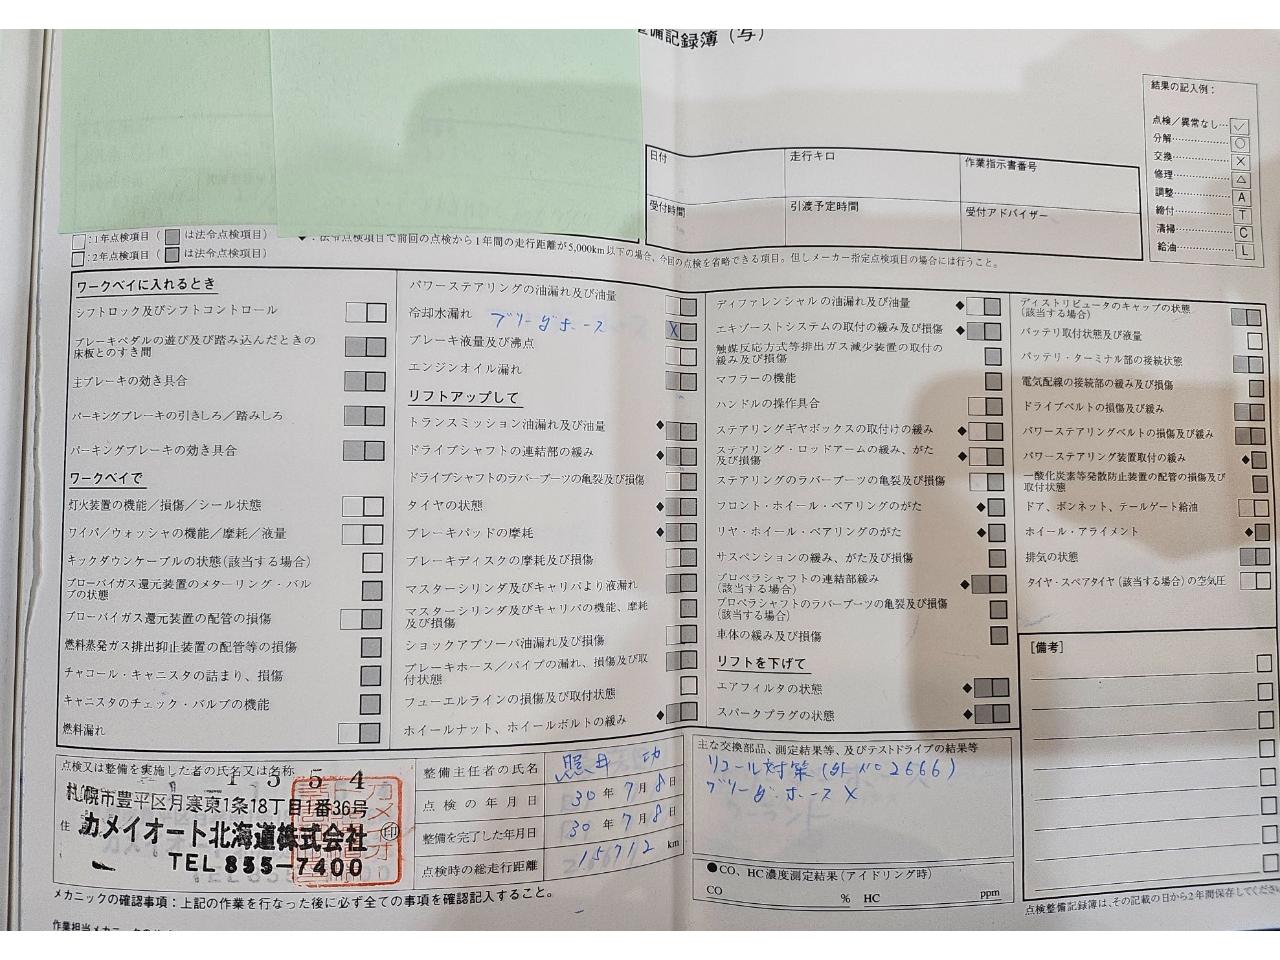 整備記録簿(写)
結果の記入例:
点検/異常なし… ✓
分解… ○
交換… ×
修理… △
調整… A
締付… T
清掃… C
給油… L
日付 走行キロ 作業指示書番号
受付時間 引渡予定時間 受付アドバイザー
:1年点検項目(は法令点検項目)
:2年点検項目(は法令点検項目)
◆:法令点検項目で前回の点検から1年間の走行距離が5,000km以下の場合、今回の点検を省略できる項目。但しメーカー指定点検項目の場合には行うこと。
ワークベイに入れるとき
シフトロック及びシフトコントロール
ブレーキペダルの遊び及び踏み込んだときの
床板とのすき間
主ブレーキの効き具合
パーキングブレーキの引きしろ/踏みしろ
パーキングブレーキの効き具合
ワークベイで
灯火装置の機能/損傷/シール状態
ワイパ/ウォッシャの機能/摩耗/液量
キックダウンケーブルの状態(該当する場合)
ブローバイガス還元装置のメターリング・バル
ブの状態
ブローバイガス還元装置の配管の損傷
燃料蒸発ガス排出抑止装置の配管等の損傷
チャコール・キャニスタの詰まり、損傷
キャニスタのチェック・バルブの機能
燃料漏れ
パワーステアリングの油漏れ及び油量
冷却水漏れ ブリーダホース X
ブレーキ液量及び沸点
エンジンオイル漏れ
リフトアップして
トランスミッション油漏れ及び油量 ◆
ドライブシャフトの連結部の緩み ◆
ドライブシャフトのラバーブーツの亀裂及び損傷
タイヤの状態 ◆
ブレーキパッドの摩耗 ◆
ブレーキディスクの摩耗及び損傷
マスターシリンダ及びキャリパより液漏れ
マスターシリンダ及びキャリパの機能、摩耗
及び損傷
ショックアブソーバ油漏れ及び損傷
ブレーキホース/パイプの漏れ、損傷及び取
付状態
フューエルラインの損傷及び取付状態
ホイールナット、ホイールボルトの緩み ◆
ディファレンシャルの油漏れ及び油量 ◆
エキゾーストシステムの取付の緩み及び損傷 ◆
触媒反応方式等排出ガス減少装置の取付の
緩み及び損傷
マフラーの機能
ハンドルの操作具合
ステアリングギヤボックスの取付けの緩み ◆
ステアリング・ロッドアームの緩み、がた
及び損傷 ◆
ステアリングのラバーブーツの亀裂及び損傷
フロント・ホイール・ベアリングのがた ◆
リヤ・ホイール・ベアリングのがた ◆
サスペンションの緩み、がた及び損傷
プロペラシャフトの連結部緩み
(該当する場合) ◆
プロペラシャフトのラバーブーツの亀裂及び損傷
(該当する場合)
車体の緩み及び損傷
リフトを下げて
エアフィルタの状態 ◆
スパークプラグの状態 ◆
ディストリビュータのキャップの状態
(該当する場合)
バッテリ取付状態及び液量
バッテリ・ターミナル部の接続状態
電気配線の接続部の緩み及び損傷
ドライブベルトの損傷及び緩み
パワーステアリングベルトの損傷及び緩み
パワーステアリング装置取付の緩み ◆
一酸化炭素等発散防止装置の配管の損傷及び
取付状態
ドア、ボンネット、テールゲート給油
ホイール・アライメント ◆
排気の状態
タイヤ・スペアタイヤ(該当する場合)の空気圧
[備考]
点検又は整備を実施した者の氏名又は名称
1554
札幌市豊平区月寒東1条18丁目1番36号
住
カメイオート北海道株式会社 印
TEL 855-7400
整備主任者の氏名 照井 功
点検の年月日 30年7月8日
整備を完了した年月日 30年7月8日
点検時の総走行距離 15712 km
主な交換部品、測定結果等、及びテストドライブの結果等
リコール対策(外No2666)
ブリーダホース X
●CO、HC濃度測定結果(アイドリング時)
CO % HC ppm
メカニックの確認事項:上記の作業を行なった後に必ず全ての事項を確認記入すること。
点検整備記録簿は、その記載の日から2年間保存してくださ